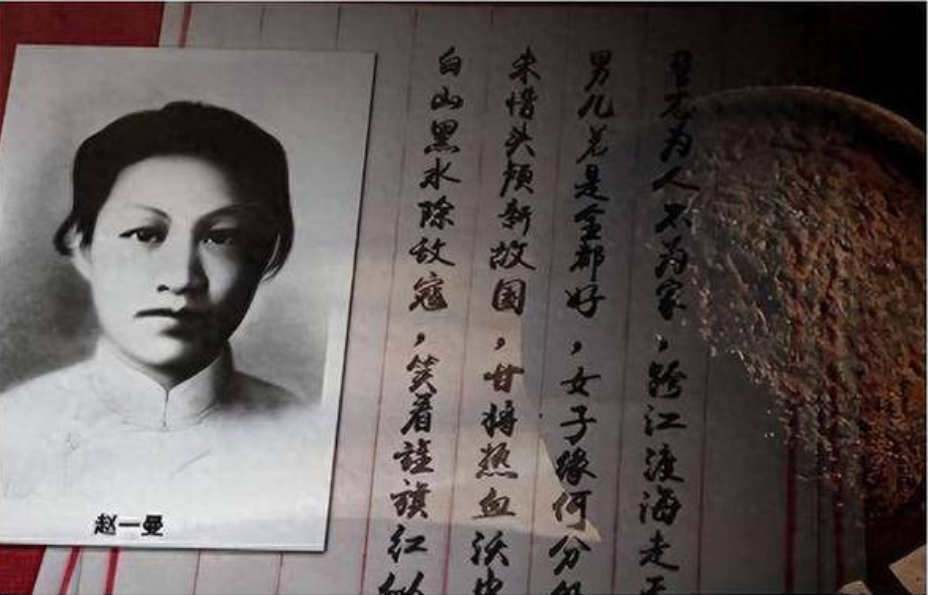 誓志为人不为家，跨江渡海走天
男儿若是全都好，女子缘何分
未惜头颅新故国，甘将热血沃
白山黑水除敌寇，笑看旌旗红
赵一曼